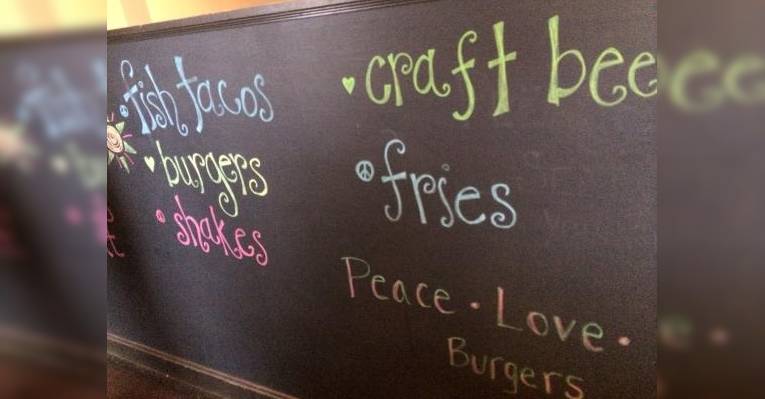 fish tacos
burgers
shakes
craft bee
fries
Peace · Love ·
Burgers